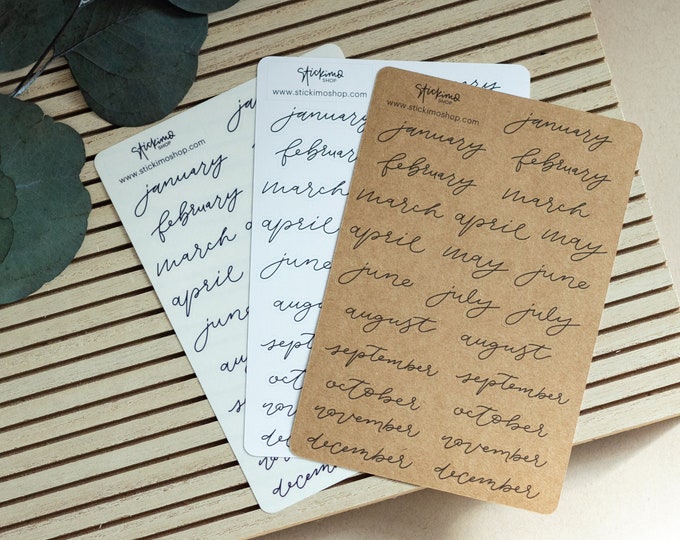 Stickimo
SHOP
www.stickimoshop.com
january
february
march
april
june
december
Stickimo
SHOP
www.stickimoshop.com
january
february
march
april
june
august
Stickimo
SHOP
www.stickimoshop.com
january
january february
february march
march april may
april may june
june july july
august august
september september
october october
november november
december december